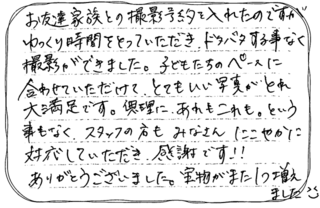 お友達家族との撮影予約を入れたのですが
ゆっくり時間をとっていただき、ドタバタする事なく
撮影ができました。子どもたちのペースに
合わせていただけて、とてもいい写真がとれ
大満足です。無理に、あれもこれも。という
事もなく、スタッフの方も みなさん にこやかに
対応していただき、感謝です!!
ありがとうございました。宝物がまた1つ増え
ました